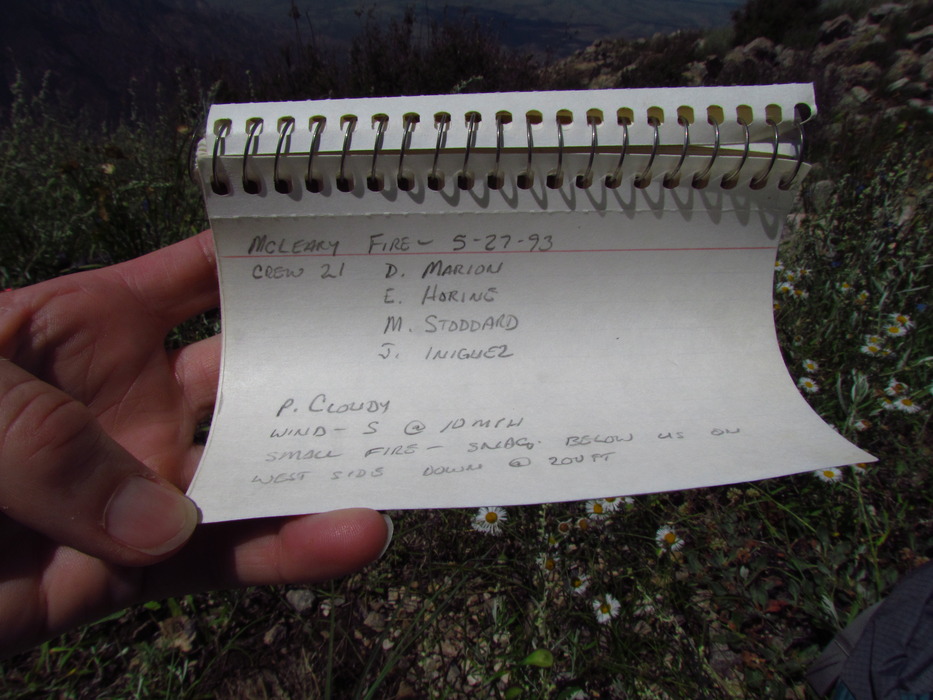 McLEARY FIRE - 5-27-93
CREW 21 D. MARION
E. HORINE
M. STODDARD
J. INIGUEZ
P. CLOUDY
WIND - S @ 10 MPH
SMALL FIRE - SNAG. BELOW US ON
WEST SIDE DOWN @ 200 FT